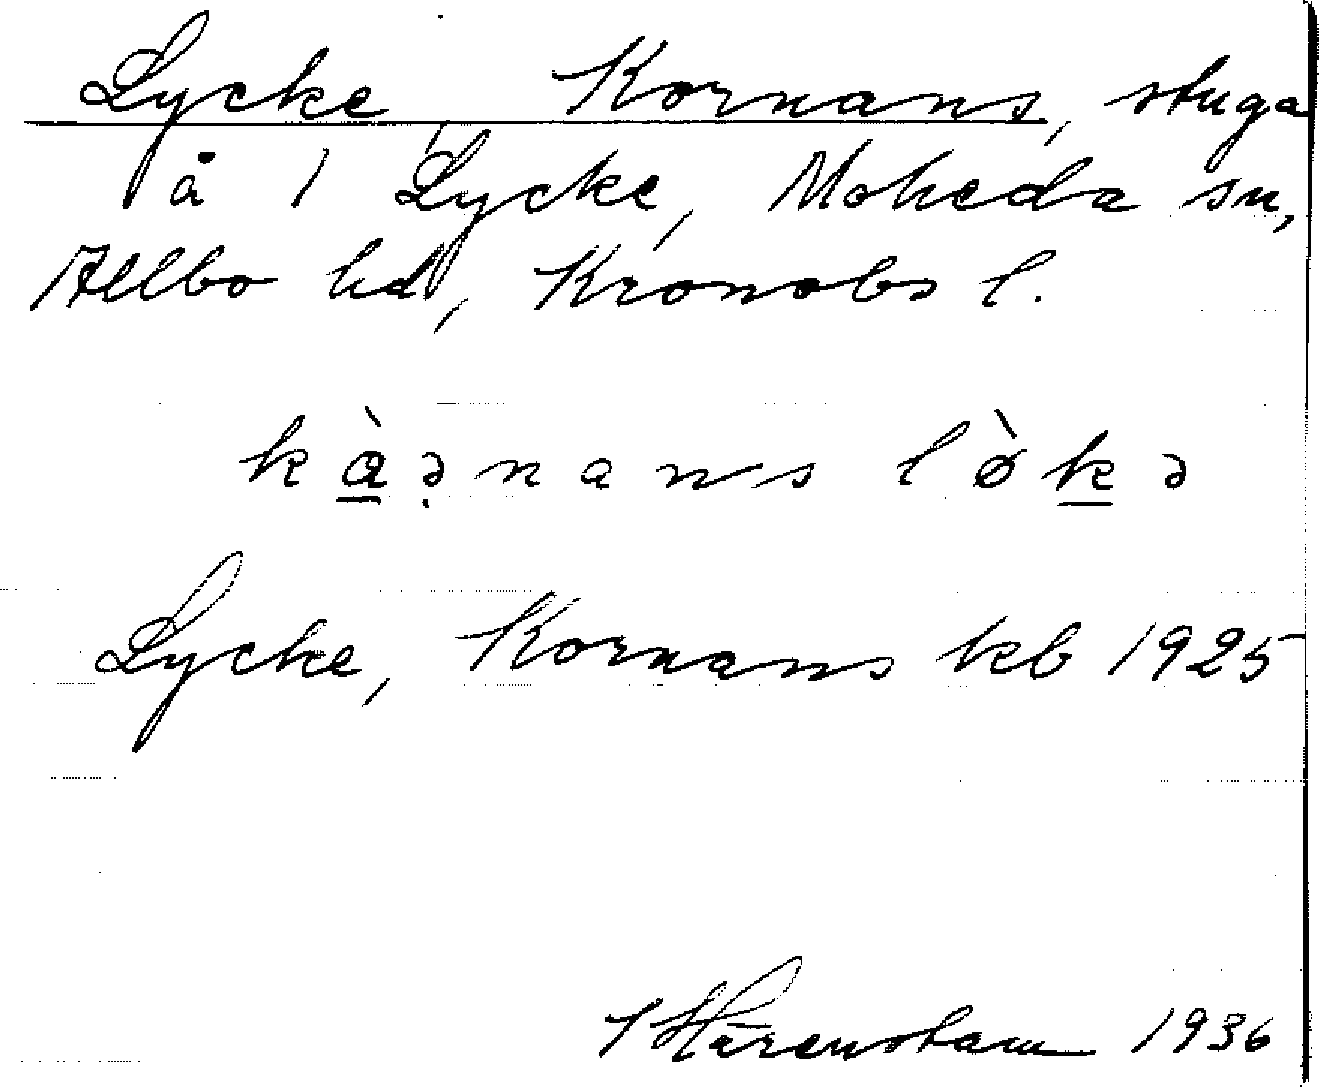 Lycke, Kornans, stuga
å 1 Lycke, Moheda sn,
Allbo hd, Kronobs l.
kàə̣nans lòkə
Lycke, Kornans kb 1925
Härenstam 1936